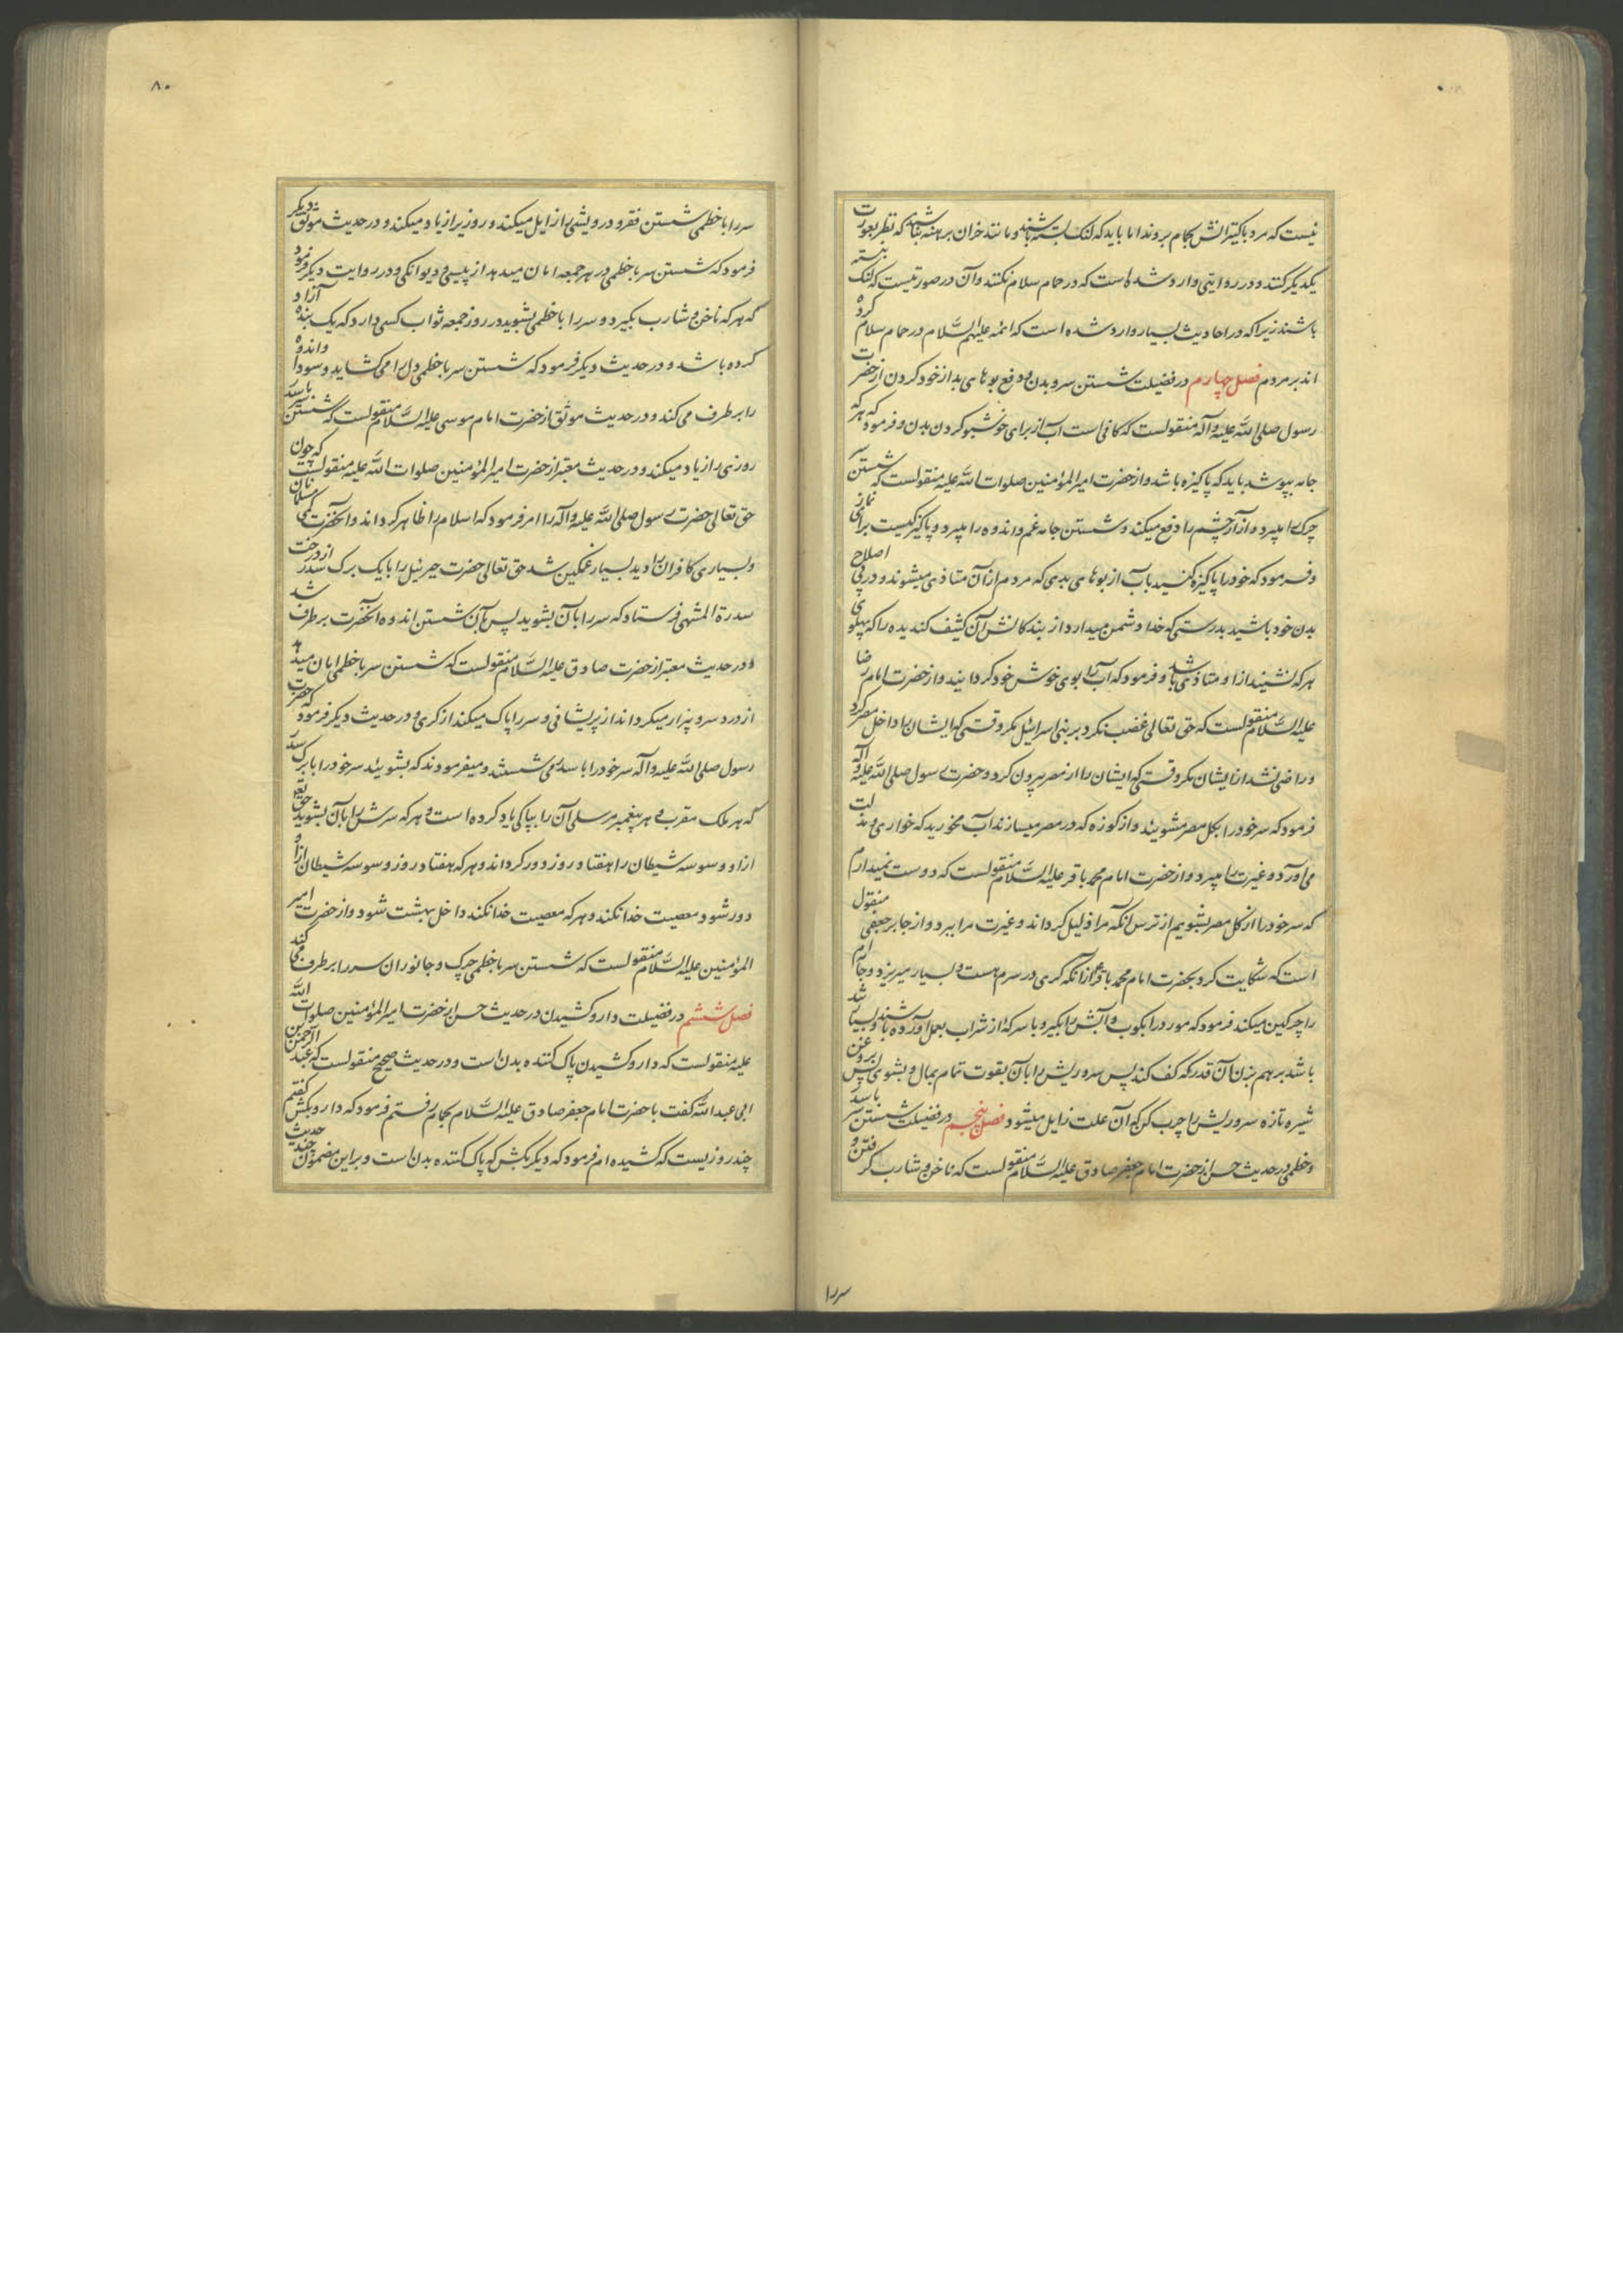 نیست که مرد با کنیزانش بحمام بروند اما باید که لنک بسته باشند و مانند خران برهنه نباشند که نظر بعورت
یکدیگر کنند و در روایتی وارد شده است که در حمام سلام نکنند و آن در صورتیست که لنک نبسته
باشند زیرا که در احادیث بسیار وارد شده است که ائمه علیهم السّلام در حمام سلام کرده
اند بر مردم فصل چهارم در فضیلت شستن سر و بدن و دفع بوهای بد از خود کردن از حضرت
رسول صلی اللّه علیه و آله منقولست که کافی است آب از برای خوشبو کردن بدن و فرمود که هر که
جامه بپوشد باید که پاکیزه باشد و از حضرت امیر المؤمنین صلوات اللّه علیه منقولست که شستن سر
چرک را میبرد و آزار چشم را دفع میکند و شستن جامه غم و اندوه را میبرد و پاکیزگیست برای نماز
و فرمود که خود را پاکیزه کنید بآب از بوهای بدی که مردم از آن متاذی میشوند و در پی اصلاح
بدن خود باشید بدرستی که خدا دشمن میدارد از بندکانش آن کثیف کندیده را که پهلوی
هر که نشیند از او متاذی باشد و فرمود که آب را بوی خوش خود کردانید و از حضرت امام رضا
علیه السّلام منقولست که حق تعالی غضب نکرد بر بنی اسرائیل مکر وقتی که ایشان را داخل مصر کرد
و راضی نشد از ایشان مکر وقتی که ایشان را از مصر بیرون کرد و حضرت رسول صلی اللّه علیه و آله
فرمود که سر خود را بکل مصر مشوئید و از کوزه که در مصر میسازند آب مخورید که خواری و مذلت
می‌آورد و غیرت را میبرد و از حضرت امام محمد باقر علیه السّلام منقولست که دوست نمیدارم
که سر خود را از کل مصر بشویم از ترس آنکه مرا ذلیل کرداند و غیرت مرا ببرد و از جابر جعفی منقول
است که شکایت کرد بحضرت امام محمد باقر از آنکه کری در سرم هست و بسیار میریزد و جامه‌ام
را چرکین میکند فرمود که مورد را بکوب و آبش را بکیر و با سرکهٔ از شراب بعمل آورده باشند و بسیار تند
باشد بر هم بزن آن قدر که کف کند پس سر و ریش را بآن بقوت تمام بمال و بشوی پس بروغن
شیره تازه سر و ریش را چرب کن که آن علت زایل میشود فصل پنجم در فضیلت شستن سر با سدر
و خطمی در حدیث حسن از حضرت امام جعفر صادق علیه السّلام منقولست که ناخن و شارب کرفتن و
سر را
۸۰
سر را با خطمی شستن فقر و درویشی را زایل میکند و روزی را زیاد میکند و در حدیث موثق دیکر
فرمود که شستن سر با خطمی در هر جمعه امان میدهد از پیسی و دیوانکی و در روایت دیکر فرمود
که هر که ناخن و شارب بکیرد و سر را با خطمی بشوید در روز جمعه ثواب کسی دارد که یک بنده آزاد
کرده باشد و در حدیث دیکر فرمود که شستن سر با خطمی دل را می کشاید و سودا و اندوه
را برطرف می کند و در حدیث موثق از حضرت امام موسی علیه السّلام منقولست که شستن سر با سدر
روزی را زیاد میکند و در حدیث معتبر از حضرت امیر المؤمنین صلوات اللّه علیه منقولست که چون
حق تعالی حضرت رسول صلی اللّه علیه و آله را امر فرمود که اسلام را ظاهر کرداند و آنحضرت کمی مسلمانان
و بسیاری کافران را دید بسیار غمکین شد حق تعالی حضرت جبرئیل را با یک برک سدر از درخت
سدرة المنتهی فرستاد که سر را بآن بشوید پس بآن شستن اندوه آنحضرت برطرف شد
و در حدیث معتبر از حضرت صادق علیه السّلام منقولست که شستن سر با خطمی امان میدهد
از درد سر و بیزار میکرداند از پریشانی و سر را پاک میکند از کری و در حدیث دیکر فرمود که حضرت
رسول صلی اللّه علیه و آله سر خود را با سدر می شستند و میفرمودند که بشوئید سر خود را با برک سدر
که هر ملک مقرب و هر پیغمبر مرسلی آن را بپاکی یاد کرده است و هر که سرش را بآن بشوید حق تع
از او وسوسه شیطان را هفتاد روز دور کرداند و هر که هفتاد روز وسوسه شیطان از او
دور شود معصیت خدا نکند و هر که معصیت خدا نکند داخل بهشت شود و از حضرت امیر
المؤمنین علیه السّلام منقولست که شستن سر با خطمی چرک و جانوران سر را برطرف می کند
فصل ششم در فضیلت دارو کشیدن در حدیث حسن از حضرت امیر المؤمنین صلوات اللّه
علیه منقولست که دارو کشیدن پاک کننده بدن است و در حدیث صحیح منقولست که عبد الرحمن بن
ابی عبد اللّه کفت با حضرت امام جعفر صادق علیه السّلام بحمام رفتم فرمود که دارو بکش کفتم
چند روزیست که کشیده ام فرمود که دیکر بکش که پاک کننده بدن است و بر این مضمون چند حدیث